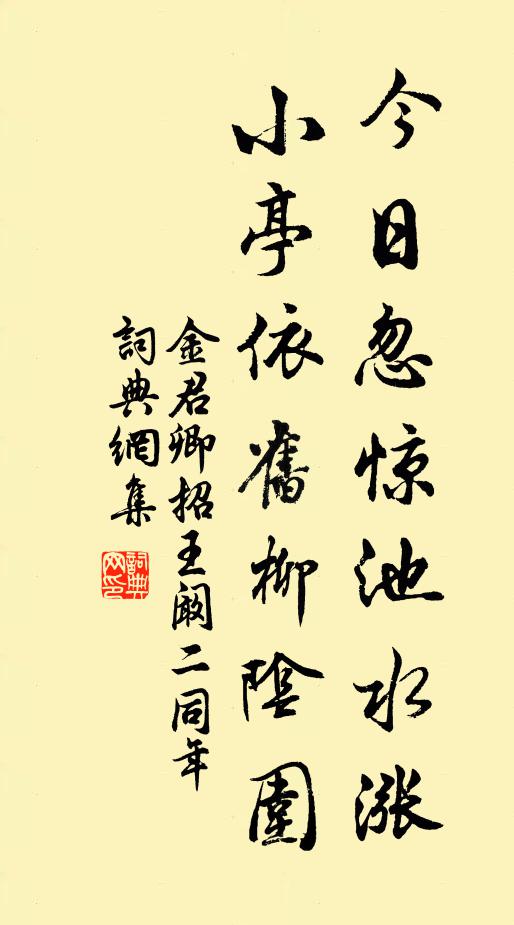 今日忽惊池水涨
小亭依舊柳陰圍
金君卿招王阚二同年
詞典網集
詞典網印